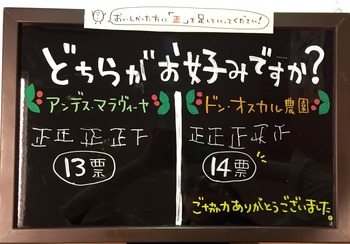 おいしかった方に「正」で足していってください！
どちらがお好みですか？
アンデス・マラヴィーヤ
正正正正下
13票
ドン・オスカル農園
正正正正下
14票
ご協力ありがとうございました。